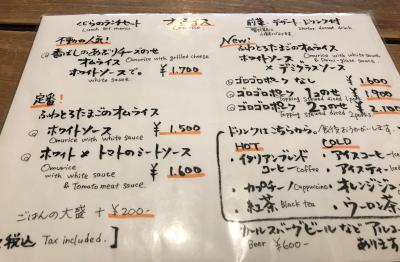 くじらのランチセット
Lunch set menu
オムライス
Omurice
前菜・デザート・ドリンク付
Starter, dessert, drink
不動の人気!
香ばしのあぶりチーズのせ
オムライス Omurice with grilled cheese
ホワイトソースで。 ¥1,700
white sauce
定番!
ふわとろたまごのオムライス
ホワイトソース ¥1,500
Omurice with white sauce
ホワイト × トマトのミートソース
Omurice
with white sauce
& Tomato meat sauce. ¥1,600
ごはんの大盛 + ¥200-
税込 Tax included. ]
New!
ふわとろたまごのオムライス
ホワイトソース Omurice with white sauce
& Demi-glace sauce
× デミグラスソース
ゴロゴロポーク なし ¥1,600
ゴロゴロポーク 1コのせ ¥1,900
topping stewed diced 1pork
ゴロゴロポーク
ドリンクはこちらから。
HOT
COLD
・イタリアンブレンド
コーヒー Coffee
・カプチーノ Cappuccino
・紅茶 Black tea
・アイスコーヒー
・アイスティー
・オレンジジュ
・ウーロン茶
カールスバーグビールなど アルコ
Beer ¥600-
あります